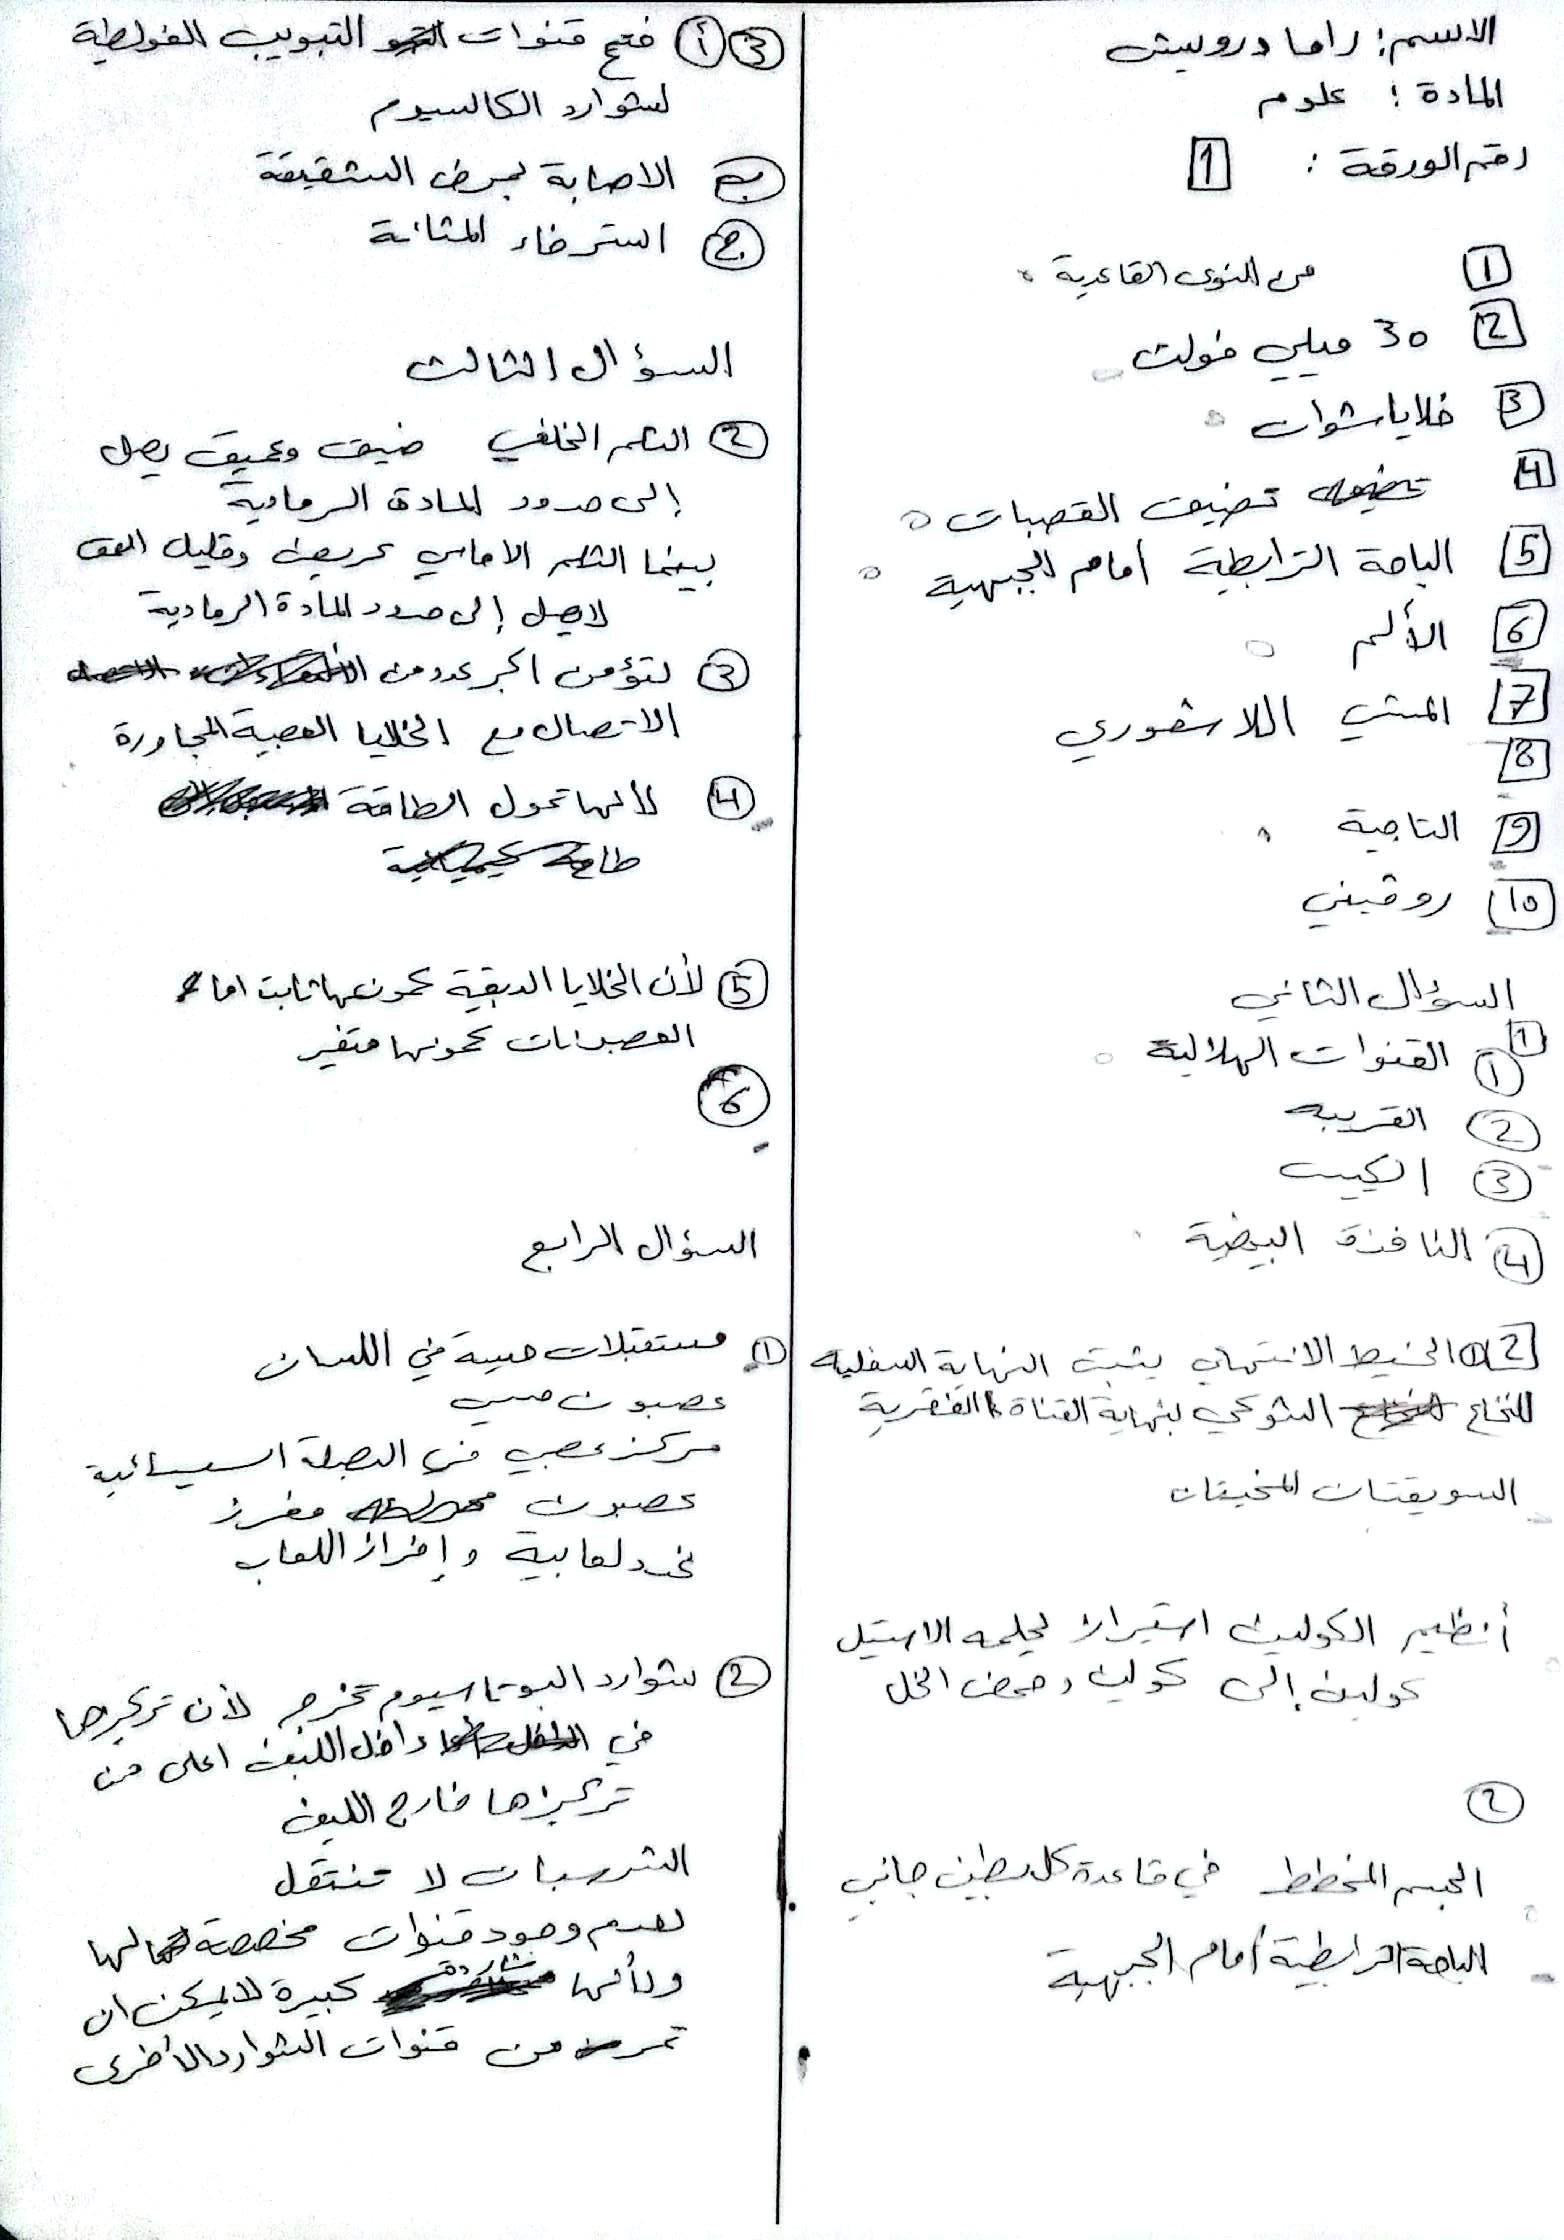 الاسم: راما درويش
المادة: علوم
رقم الورقة: 1
1 من النوى القاعدية
2 30 ميلي فولت
3 خلايا شوان
4 تضيق القصبات
5 الباحة الترابطية أمام الجبهية
6 الألم
7 المشي اللاشعوري
8
9 التاجية
10 روفيني
السؤال الثاني
1
1 القنوات الهلالية
2 القريبة
3 الكييس
4 النافذة البيضية
2 1 الخيط الانتهائي يثبت النهاية السفلية
للنخاع الشوكي بنهاية القناة الفقرية
السويقتان المخيتان
أنظيم الكولين استيراز لحلمهه الاستيل
كولين إلى كولين وحمض الخل
2
الجسم المخطط في قاعدة كل بطين جانبي
الباحة الترابطية أمام الجبهية
3 أ فتح قنوات التبويب الفولطية
لشوارد الكالسيوم
ب الاصابة بمرض الشقيقة
ج استرخاء المثانة
السؤال الثالث
2 الثلم الخلفي ضيق وعميق يصل
إلى حدود المادة الرمادية
بينما الثلم الامامي عريض وقليل العمق
لا يصل إلى حدود المادة الرمادية
3 لتؤمن اكبر عدد من
الاتصال مع الخلايا العصبية المجاورة
4 لأنها تحول الطاقة
طاقة
5 لأن الخلايا الدبقية كمونها ثابت اما
العصبونات كمونها متغير
6
السؤال الرابع
1 مستقبلات حسية في اللسان
عصبون حسي
مركز عصبي في البصلة السيسائية
عصبون مفرز
غدد لعابية وإفراز اللعاب
2 شوارد البوتاسيوم تخرج لأن تركيزها
في داخل الليف اعلى من
تركيزها خارج الليف
الشرسبات لا تنتقل
لعدم وجود قنوات مخصصة لها
ولأنها شاردة كبيرة لا يمكن ان
تمر من قنوات الشوارد الأخرى